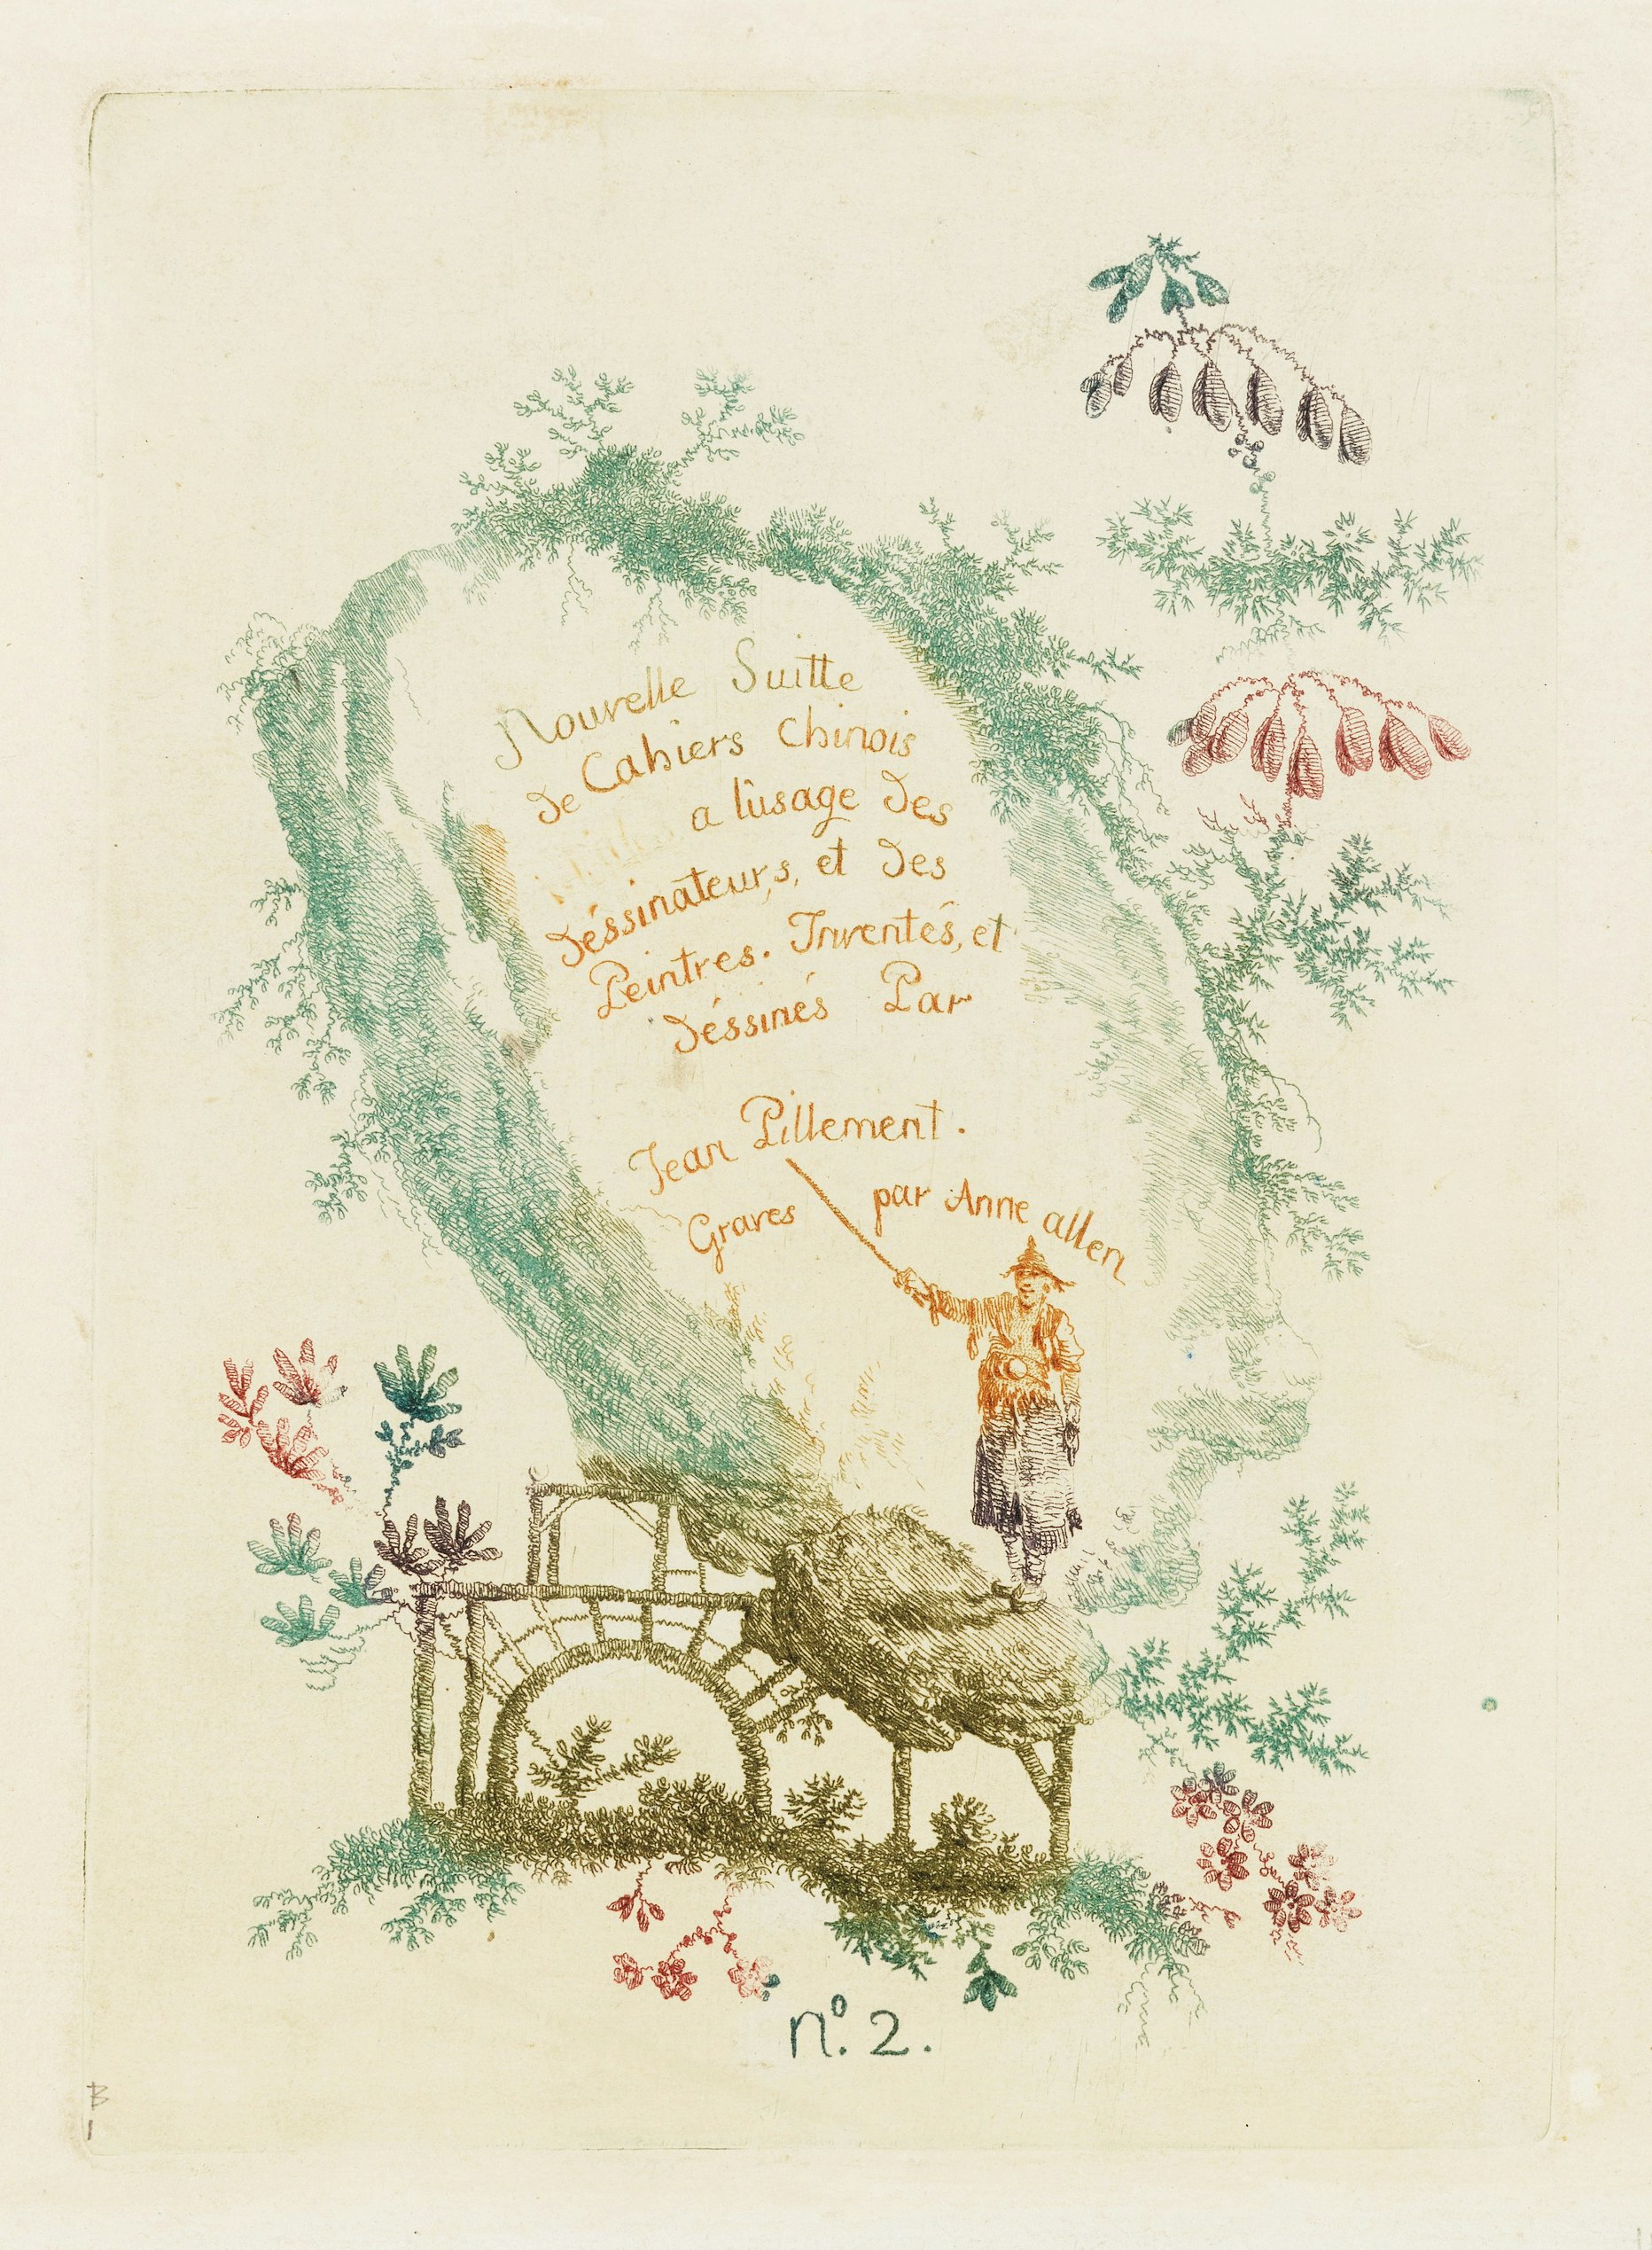 Nouvelle Suitte
de Cahiers Chinois
a lûsage des
déssinateurs, et des
Peintres. Inventés, et
déssinés Par
Jean Pillement.
Graves par Anne allen
nº. 2.
B
1